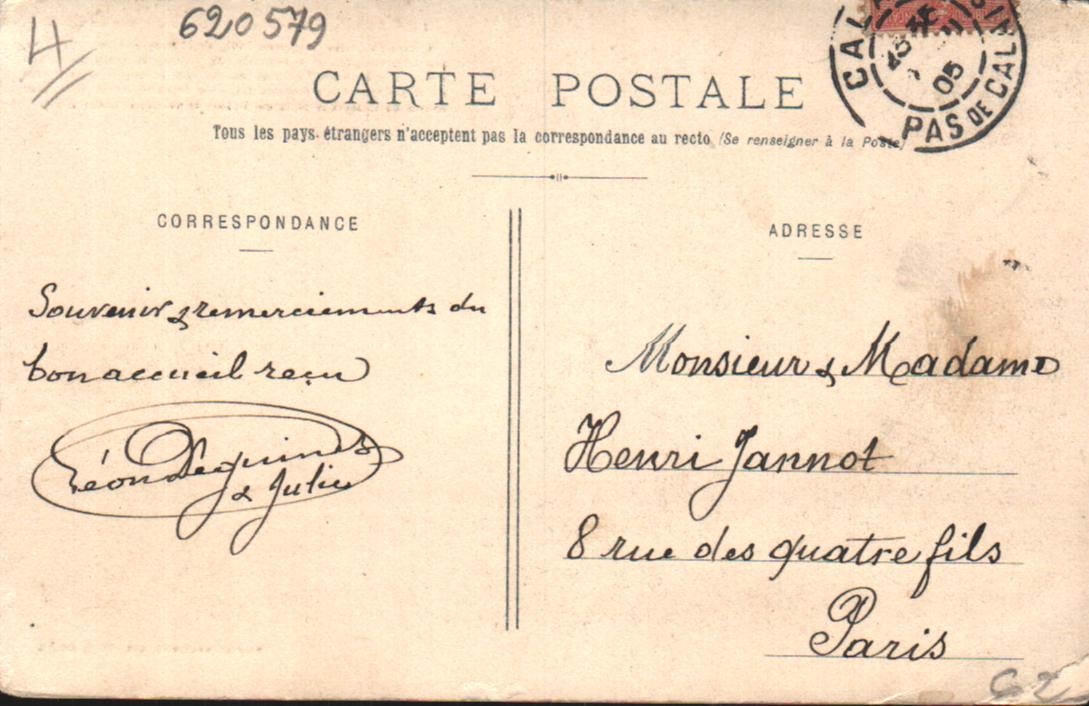 4
620579
CARTE POSTALE
Tous les pays étrangers n'acceptent pas la correspondance au recto (Se renseigner à la Poste)
PAS DE CALAIS
05
CORRESPONDANCE
Souvenir & remerciements du
bon accueil reçu
Léon
& Julie
ADRESSE
Monsieur & Madame
Henri Jannot
8 rue des quatre fils
Paris